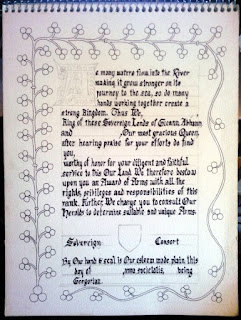 As many waters flow into the River
making it grow stronger on its
journey to the sea, so do many
hands working together create a
strong Kingdom. Thus We,
King of these Sovereign Lands of
and , Our most gracious Queen,
after hearing praise for your efforts do find
you,
worthy of honor for your diligent and faithful
service to this Our Land. We therefore bestow
upon you an Award of Arms with all the
rights, privileges and responsibilities of this
rank. Further, We charge you to consult Our
Heralds to determine suitable and unique Arms.
Sovereign Consort
By Our hand & seal is Our esteem made plain, this
day of , anno societatis, being
Gregorian.